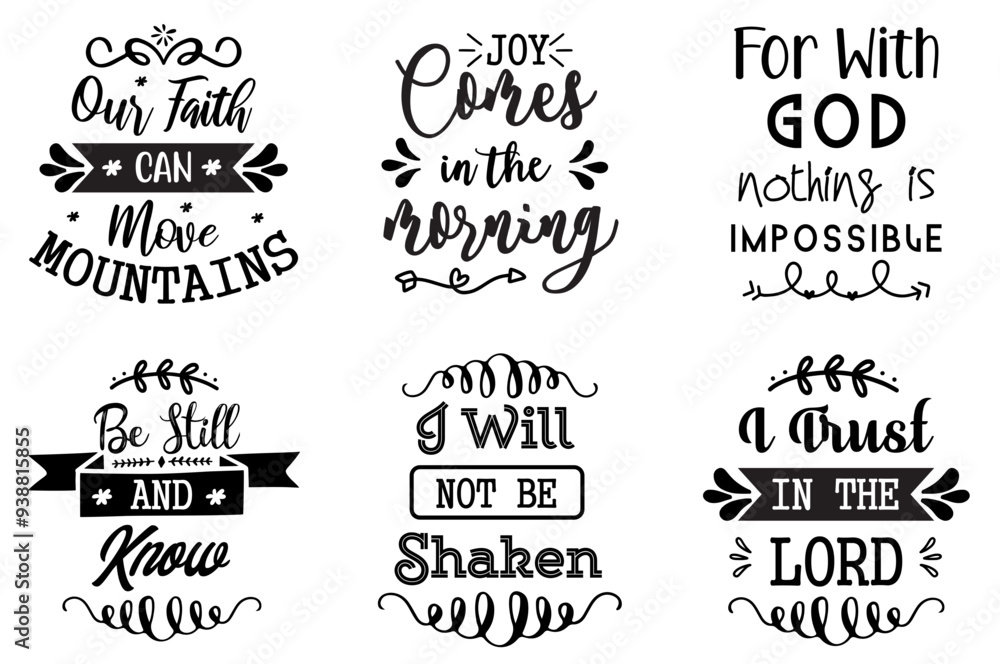 Our Faith
CAN
Move
MOUNTAINS
JOY
Comes
in the
morning
For With
GOD
nothing is
IMPOSSIBLE
Be Still
AND
Know
I Will
NOT BE
Shaken
I Trust
IN THE
LORD
Adobe Stock | #938815855